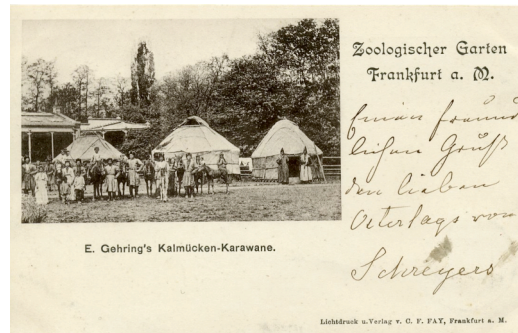 Zoologischer Garten
Frankfurt a. M.
Einen freund
lichen Gruß
den lieben
von
Schreyers
E. Gehring's Kalmücken-Karawane.
Lichtdruck u. Verlag v. C. F. FAY, Frankfurt a. M.